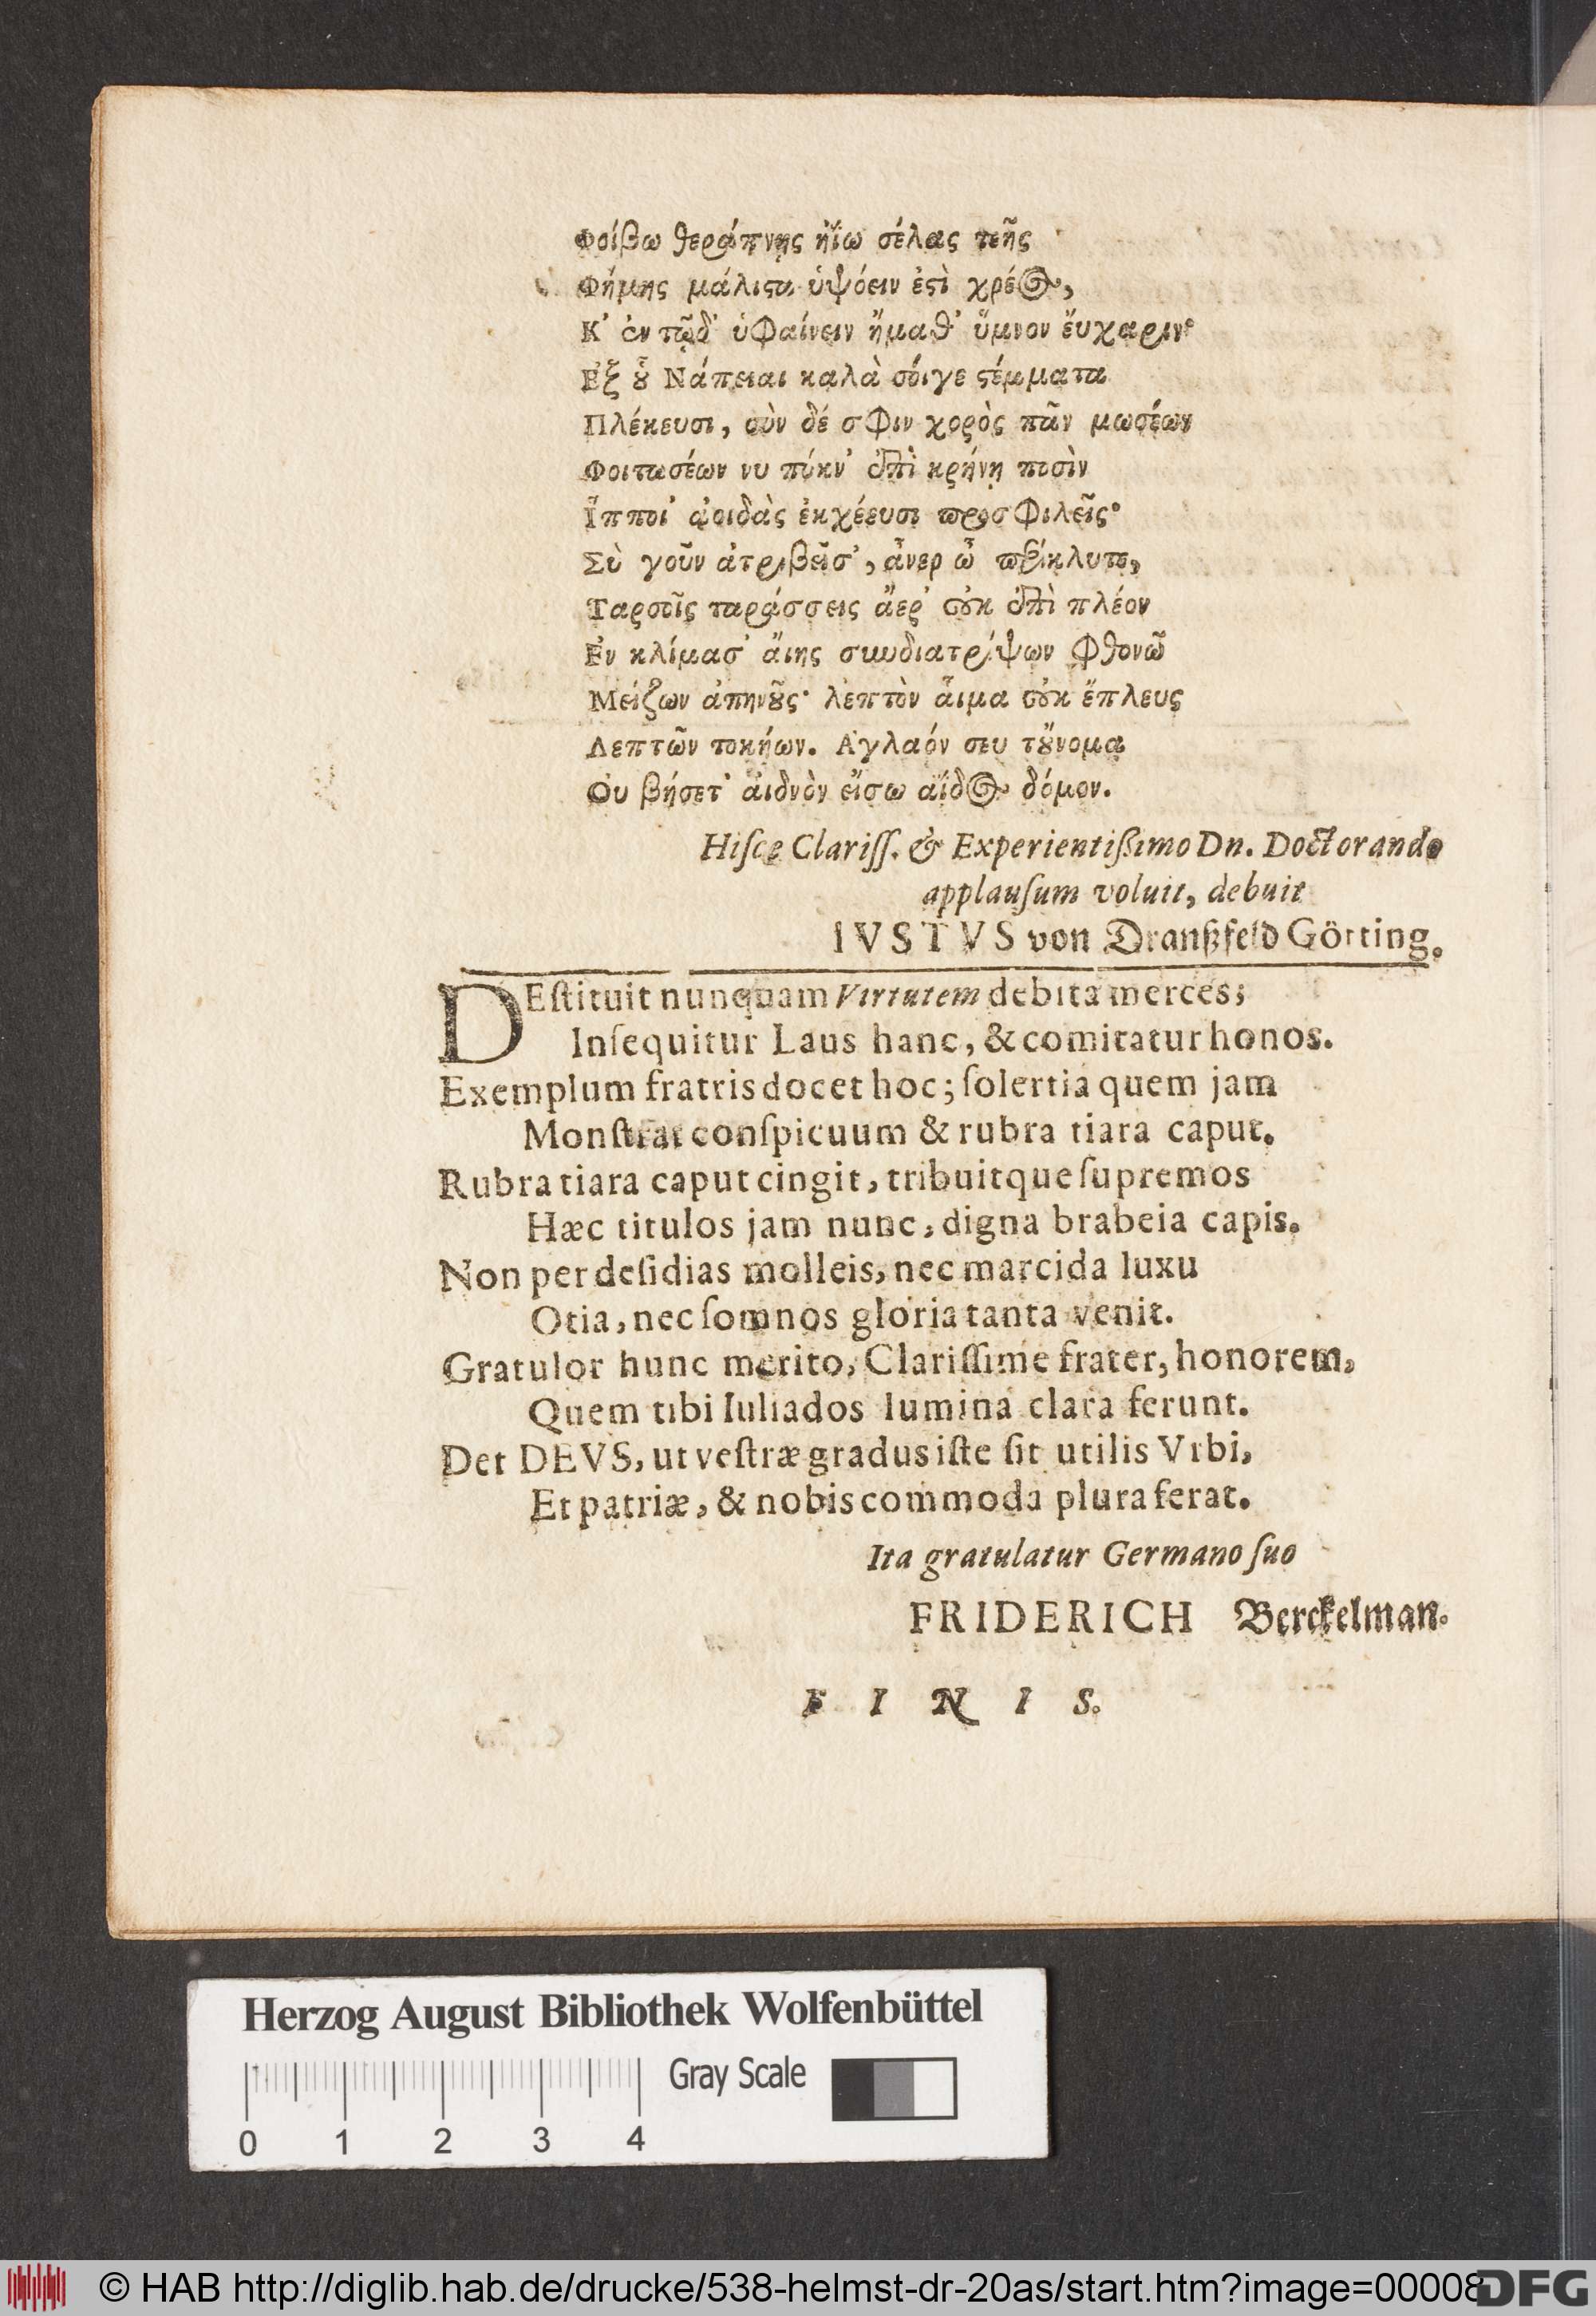 Φοίβω θεράπνης ἠΐω σέλας τεῆς
Φήμης μάλιϛα ὑψόειν ἐϛὶ χρέος,
Κ' ἐν τῷδ' ὑφαίνειν ἤμαθ' ὕμνον ἔυχαριν·
Εξ ȣ̃ Νάπειαι καλὰ σόιγε ϛέμματα
Πλέκευσι, σὺν δέ σφιν χορὸς πᾶν μωσέων
Φοιτωσέων νυ πύκν' ἐπὶ κρήνη ποσὶν
Ἵπποι' ἀοιδὰς ἐκχέευσι προσφιλεῖς·
Σὺ γοῦν ἀτριβεῖσ', ἆνερ ὦ περίκλυτε,
Ταρσοῖς ταράσσεις ἄερ' οὐκ ἐπὶ πλέον
Ἐν κλίμασ' ἄιης συνδιατρίψων φθονῶ
Μείζων ἀπηνȣ͂ς· λεπτὸν ἆιμα οὐκ ἔπλευς
Λεπτῶν τοκήων. Αγλαόν σευ τȣ̓́νομα
Ου βήσετ' ἀιδνὸν εἴσω ἀΐδος δόμον.
Hiſce Clariſſ. & Experientißimo Dn. Doctorando
applauſum voluit, debuit
IVSTVS von Dranßfeld Götting.
DEſtituit nunquam Virtutem debita merces;
Inſequitur Laus hanc, & comitatur honos.
Exemplum fratris docet hoc; ſolertia quem jam
Monſtrat conſpicuum & rubra tiara caput.
Rubra tiara caput cingit, tribuitque ſupremos
Hæc titulos jam nunc, digna brabeia capis.
Non per deſidias molleis, nec marcida luxu
Otia, nec ſomnos gloria tanta venit.
Gratulor hunc merito, Clariſſime frater, honorem,
Quem tibi Iuliados lumina clara ferunt.
Det DEVS, ut veſtræ gradus iſte ſit utilis Vrbi,
Et patriæ, & nobis commoda plura ferat.
Ita gratulatur Germano ſuo
FRIDERICH Berckelman.
F I N I S.
Herzog August Bibliothek Wolfenbüttel
Gray Scale
0 1 2 3 4
© HAB http://diglib.hab.de/drucke/538-helmst-dr-20as/start.htm?image=00008
DFG